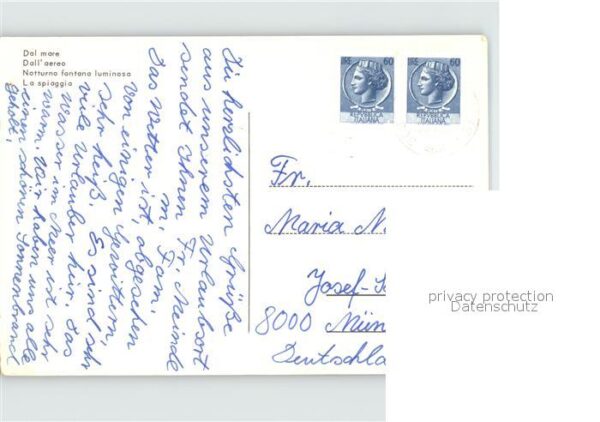 Dal mare
Dall'aereo
Notturno fontana luminosa
La spiaggia
Die herzlichsten Grüße
aus unserem Urlaubsort
sendet Ihnen Fr. Meinde
m. Fam.
Das Wetter ist, abgesehen
von einigen Gewittern,
sehr heiß. Es sind sehr
viele Urlauber hier. Das
Wasser im Meer ist sehr
warm. Wir haben uns alle
einen schönen Sonnenbrand
geholt.
LIRE 60
REPUBBLICA
ITALIANA
LIRE 60
REPUBBLICA
ITALIANA
Fr.
Maria N
Josef-S
8000 Mün
Deutschla
privacy protection
Datenschutz